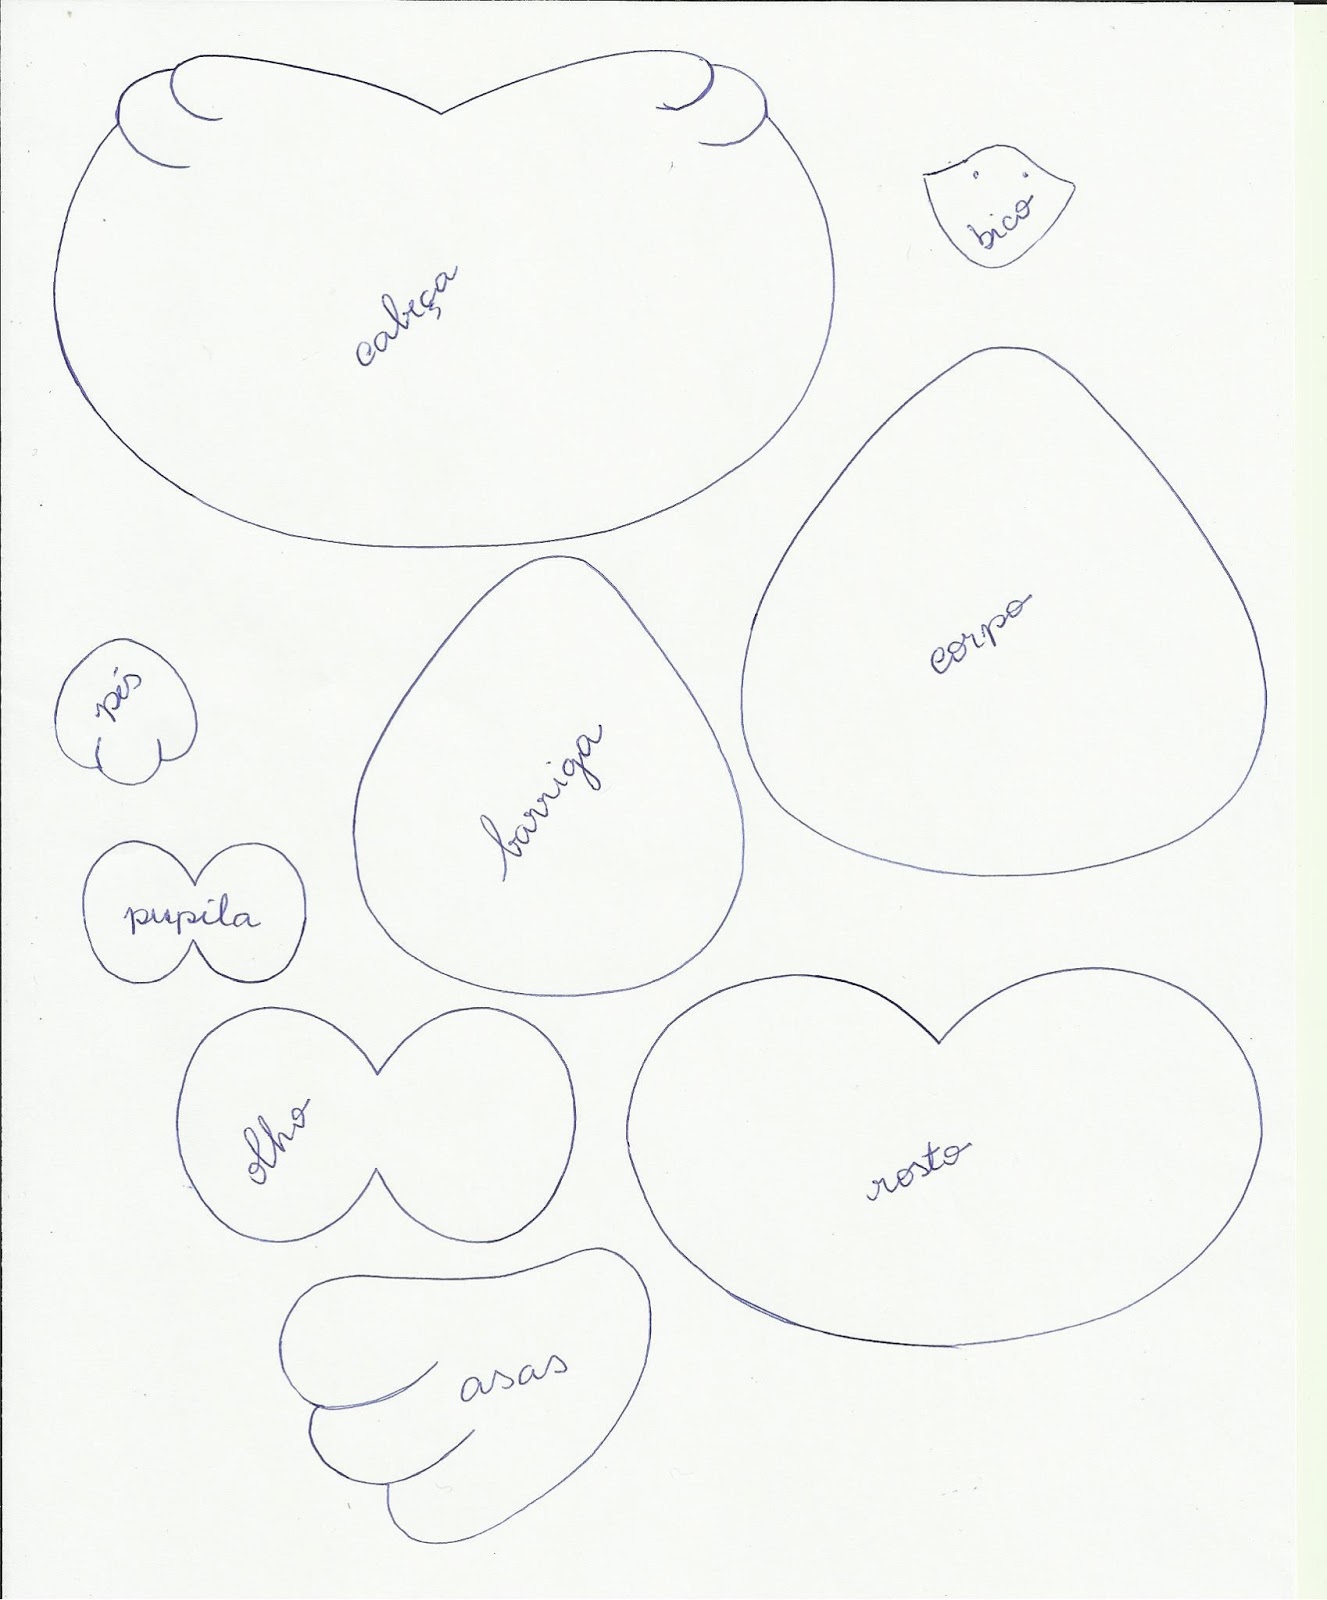 bico
cabeça
corpo
pés
barriga
pupila
olho
rosto
asas